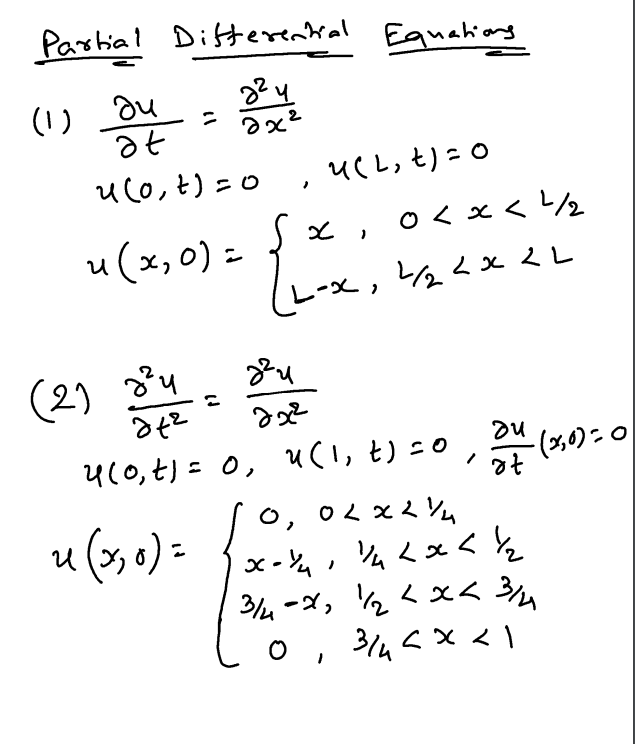 Partial Differential Equations
(1) ∂u/∂t = ∂²u/∂x²
u(0,t) = 0 , u(L,t) = 0
u(x,0) = { x , 0 < x < L/2
L-x , L/2 < x < L
(2) ∂²u/∂t² = ∂²u/∂x²
u(0,t) = 0, u(1,t) = 0 , ∂u/∂t (x,0) = 0
u(x,0) = { 0, 0 < x < 1/4
x-1/4 , 1/4 < x < 1/2
3/4-x, 1/2 < x < 3/4
0 , 3/4 < x < 1